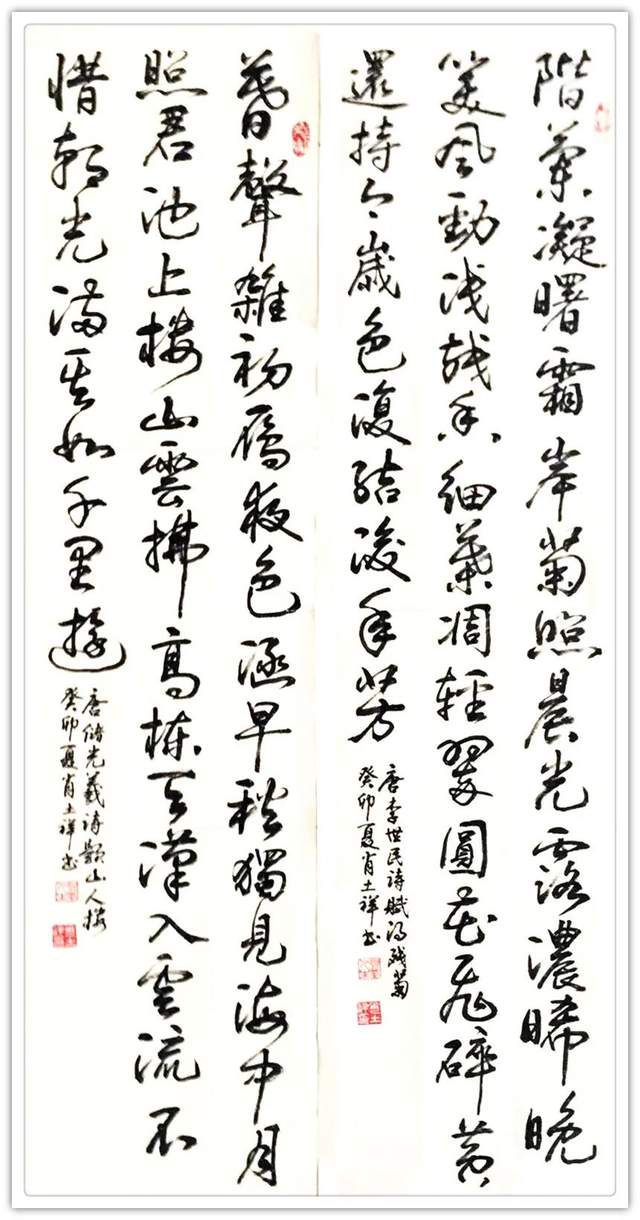 階蘭凝曙霜岸菊照晨光露濃晞晚
笑風勁浅残香細葉凋輕翠圓花飛碎黄
還持今歲色復結後年芳
唐李世民詩賦得残菊
癸卯夏肖土祥书
暮聲雜初雁夜色涵早秋獨見海中月
照君池上楼山雲拂高棟天漢入雲流不
惜朝光滿其如千里遊
唐储光羲詩題山人楼
癸卯夏肖土祥书